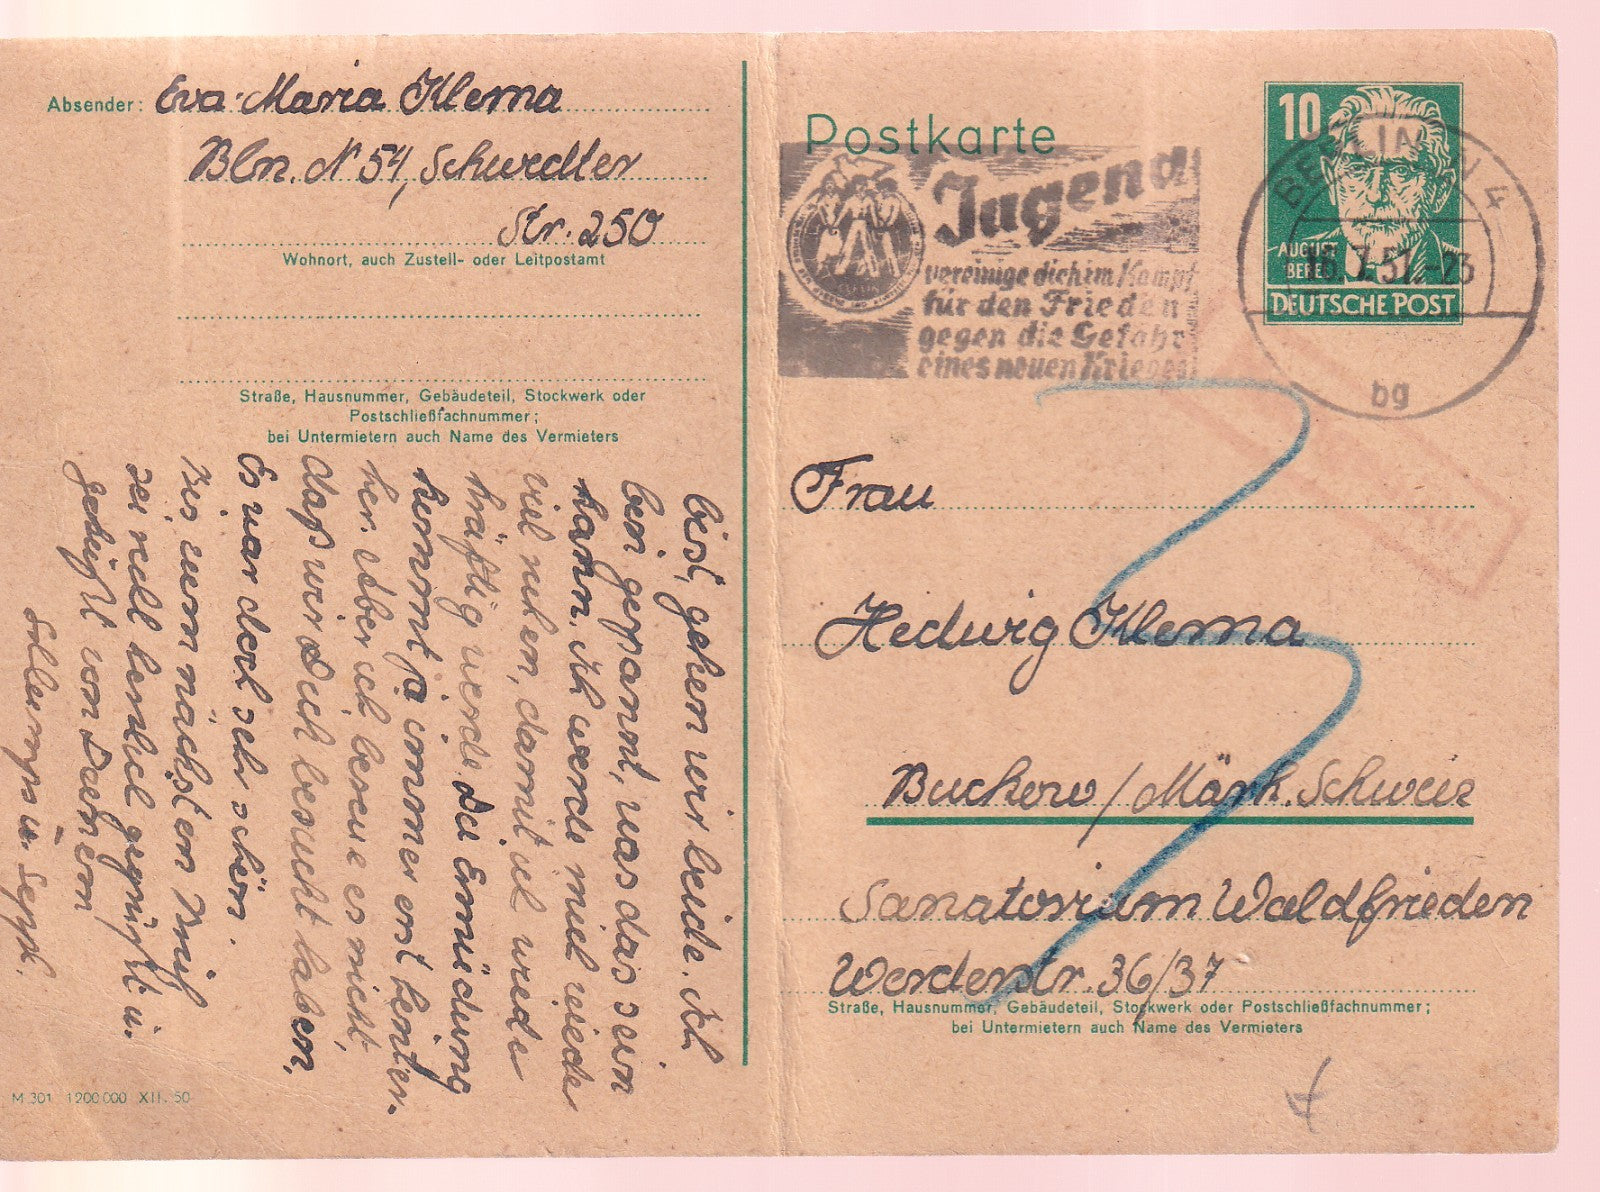 Absender: Eva-Maria Klema
Bln. N 54, Schwedter
Str. 250
Wohnort, auch Zustell- oder Leitpostamt
Straße, Hausnummer, Gebäudeteil, Stockwerk oder
Postschließfachnummer;
bei Untermietern auch Name des Vermieters
bist, gehen wir beide. Ich
bin gespannt, was das sein
kann. Ich werde mich wieder
viel
kräftig werde. Die Ermüdung
kommt ja immer erst hinter-
her. Aber ich bereue es nicht,
daß wir Dich besucht haben.
Es war doch sehr schön.
Bis zum nächsten Mal
sei recht herzlich gegrüßt u.
geküßt von Deinem
u. Seppl.
M 301 1 200 000 XII. 50
Postkarte
Jugend
vereinige dich im Kampf
für den Frieden
gegen die Gefahr
eines neuen Krieges
10
AUGUST
BEBEL
DEUTSCHE POST
BERLIN N 4
51.-23
bg
Frau
Hedwig Klema
Buckow / Märk. Schweiz
Sanatorium Waldfrieden
Werderstr. 36/37
Straße, Hausnummer, Gebäudeteil, Stockwerk oder Postschließfachnummer;
bei Untermietern auch Name des Vermieters